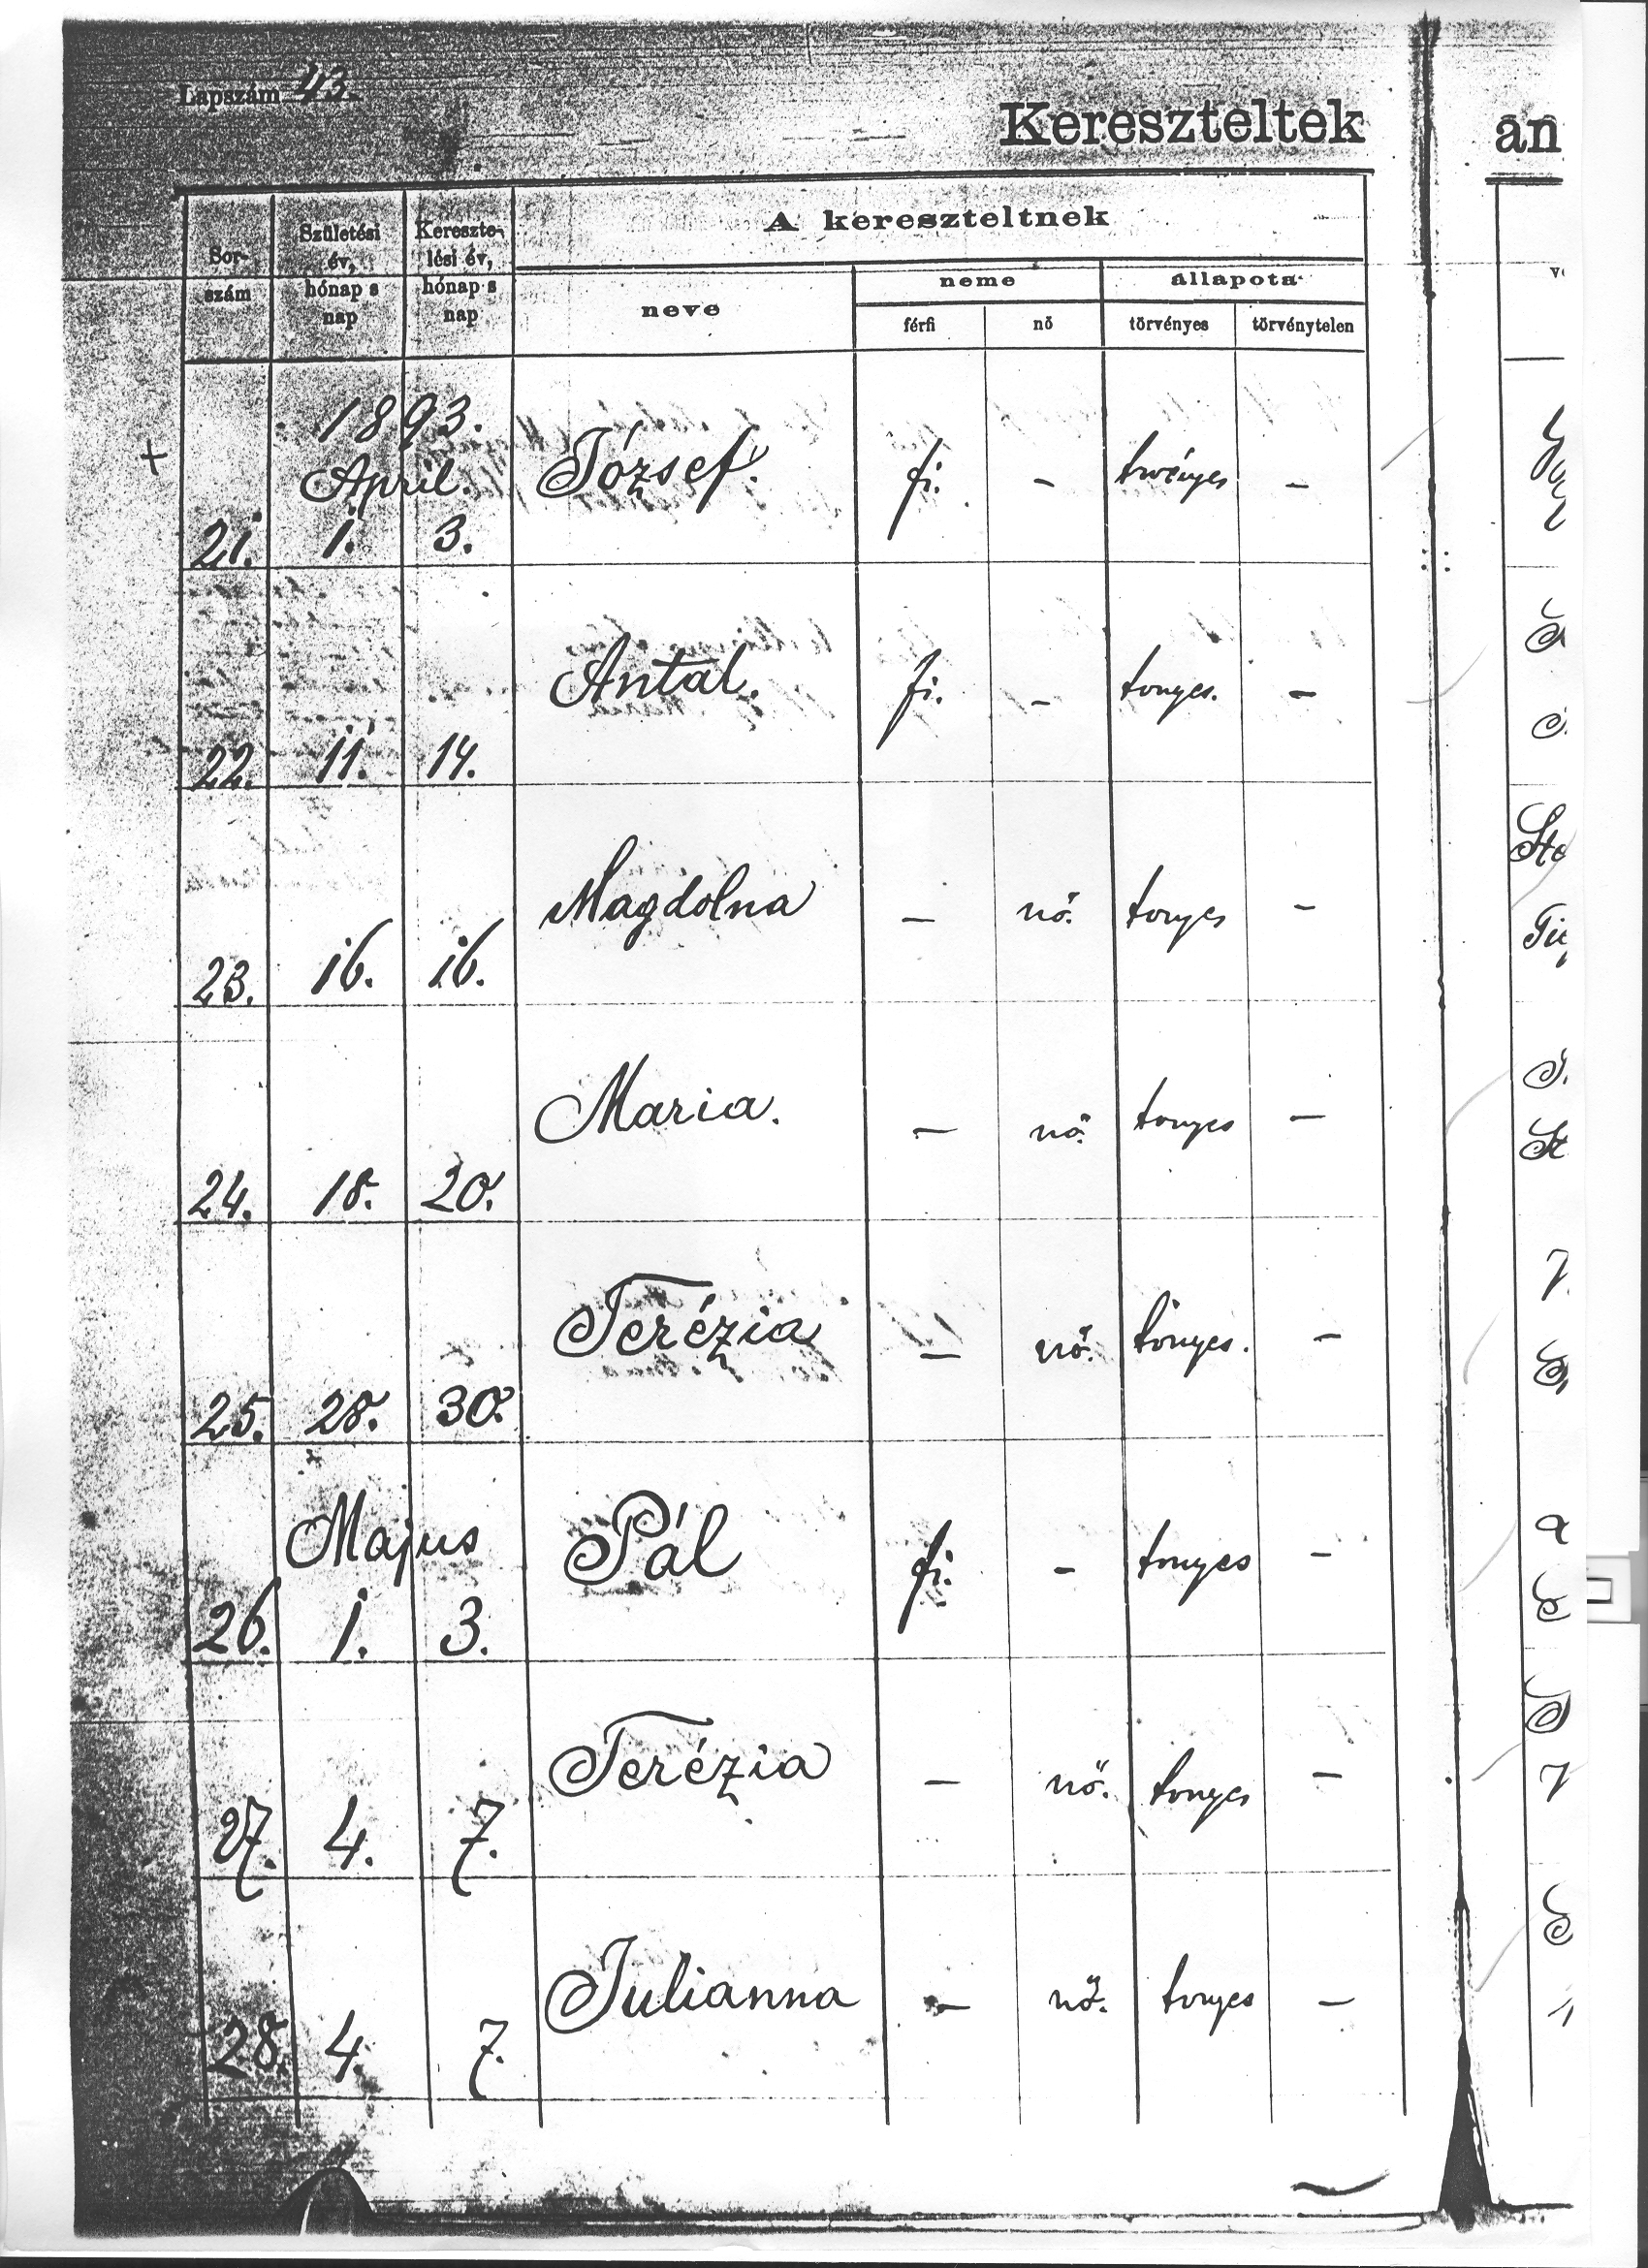 Lapszám 43.
Kereszteltek
an
Sor-
szám
Születési
év,
hónap s
nap
Keresztе-
lési év,
hónap s
nap
A kereszteltnek
neve
neme
állapota
férfi
nő
törvényes
törvénytelen
1893.
April.
21. 1. 3. József. fi. - törvényes -
22. 11. 14. Antal. fi. - tönyes. -
23. 16. 16. Magdolna - nő. tönyes -
24. 18. 20. Maria. - nő. tönyes -
25. 28. 30. Terézia - nő. tönyes. -
Majus
26. 1. 3. Pál fi. - tönyes -
27. 4. 7. Terézia - nő. tönyes -
28. 4. 7. Julianna - nő. tönyes -